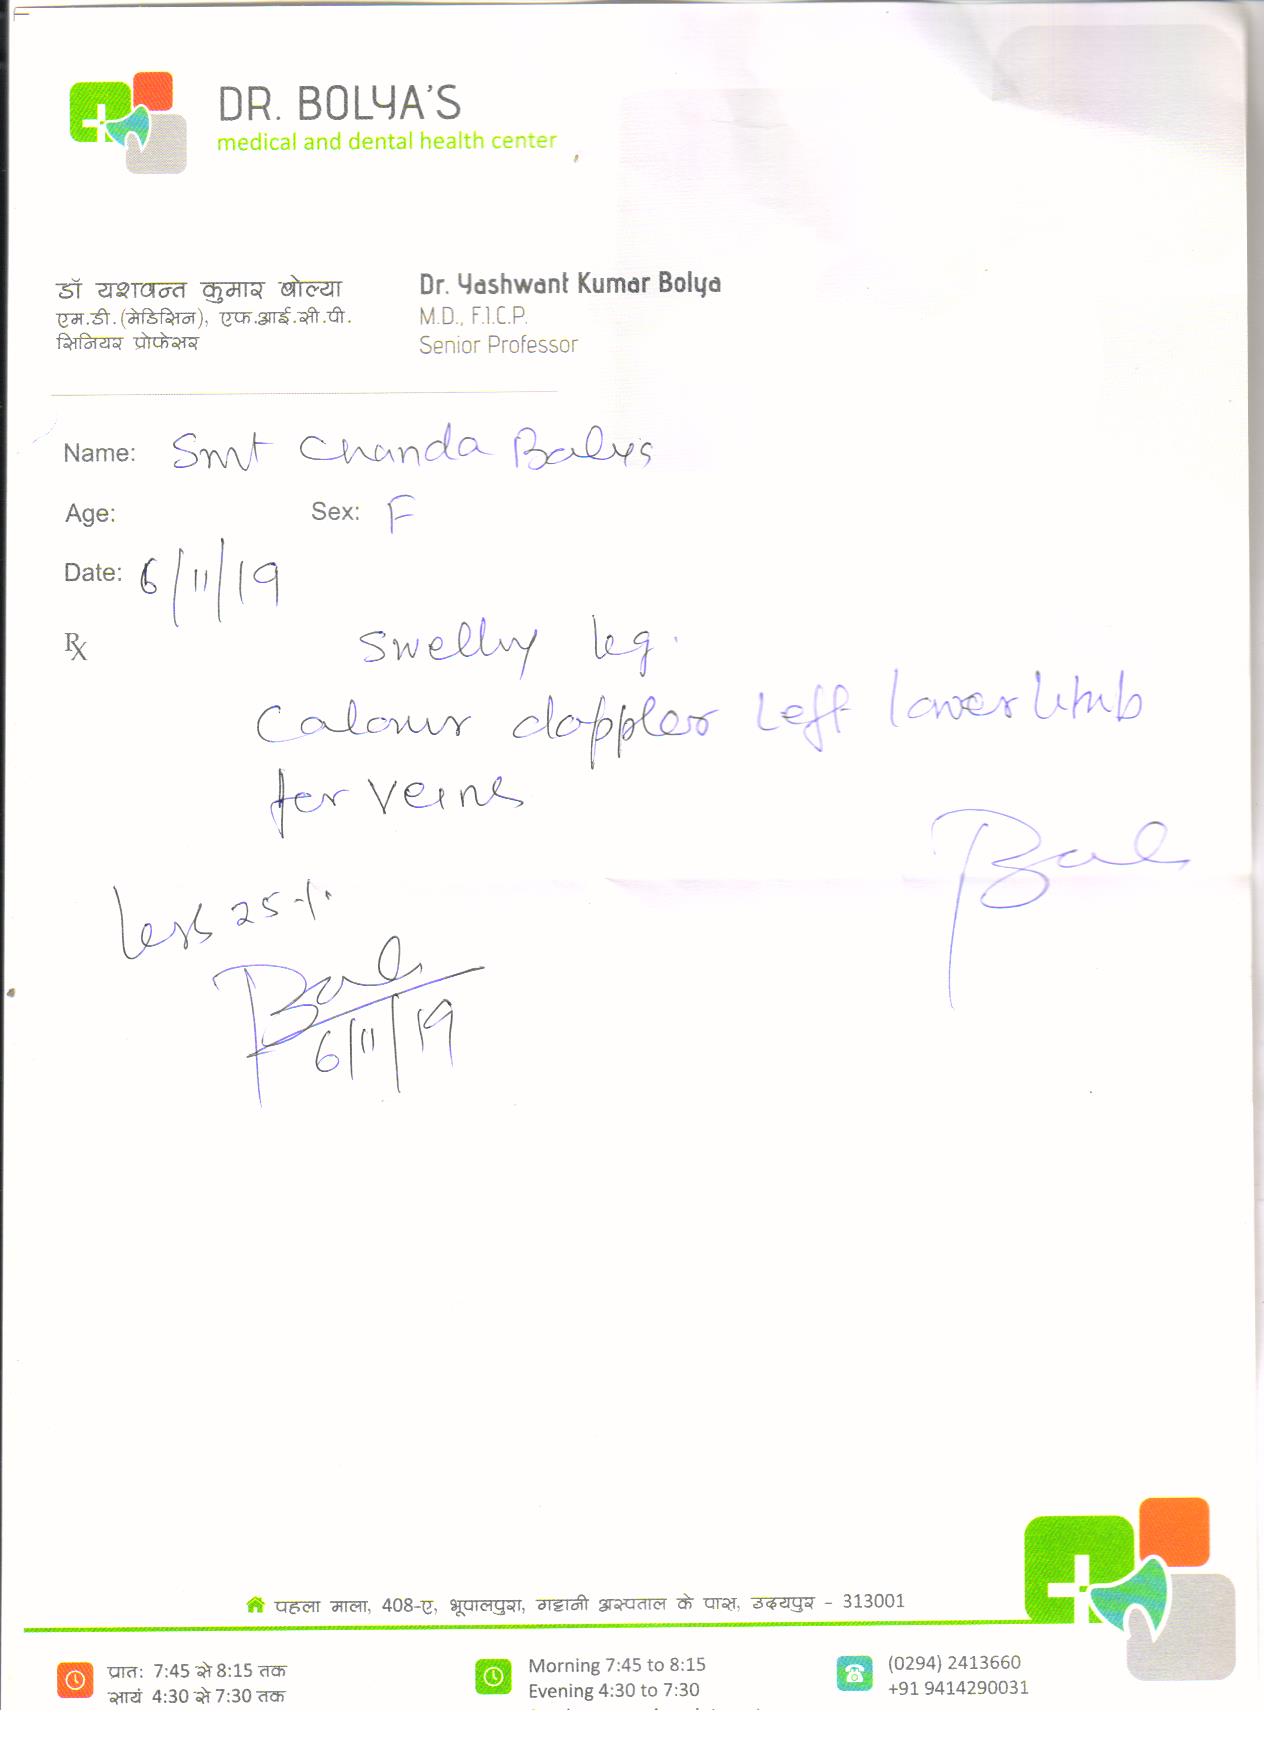 DR. BOLYA'S
medical and dental health center
डॉ यशवन्त कुमार बोल्या
एम.डी.(मेडिसिन), एफ.आई.सी.पी.
सिनियर प्रोफेसर
Dr. Yashwant Kumar Bolya
M.D., F.I.C.P.
Senior Professor
Name: Smt Chanda
Age: Sex: F
Date: 6/11/19
Rx
Swelling leg.
Colour doppler Left lower limb
for veins
Less 25%
6/11/19
पहला माला, 408-ए, भूपालपुरा, गट्टानी अस्पताल के पास, उदयपुर - 313001
प्रात: 7:45 से 8:15 तक
सायं 4:30 से 7:30 तक
Morning 7:45 to 8:15
Evening 4:30 to 7:30
(0294) 2413660
+91 9414290031